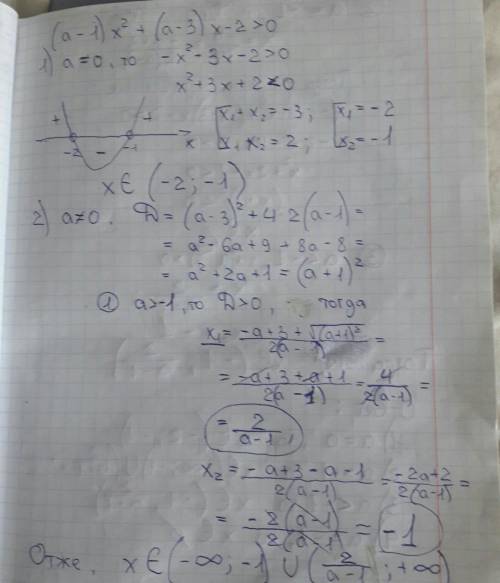 (a-1)x² + (a-3)x-2>0
1) a=0, то -x²-3x-2>0
x²+3x+2<0
+ - + -2 -1 x
x₁+x₂=-3; x₁=-2
x₁x₂=2; x₂=-1
x∈(-2;-1)
2) a≠0. D=(a-3)²+4·2(a-1)=
= a²-6a+9+8a-8=
= a²+2a+1=(a+1)²
① a>-1, то D>0, тогда
x₁= (-a+3+√(a+1)²)/(2(a-1)) =
= (-a+3+a+1)/(2(a-1)) = 4/(2(a-1)) =
= 2/(a-1),
x₂= (-a+3-a-1)/(2(a-1)) = (-2a+2)/(2(a-1)) =
= (-2(a-1))/(2(a-1)) = -1
Отже, x∈(-∞;-1)∪(2/(a-1);+∞)